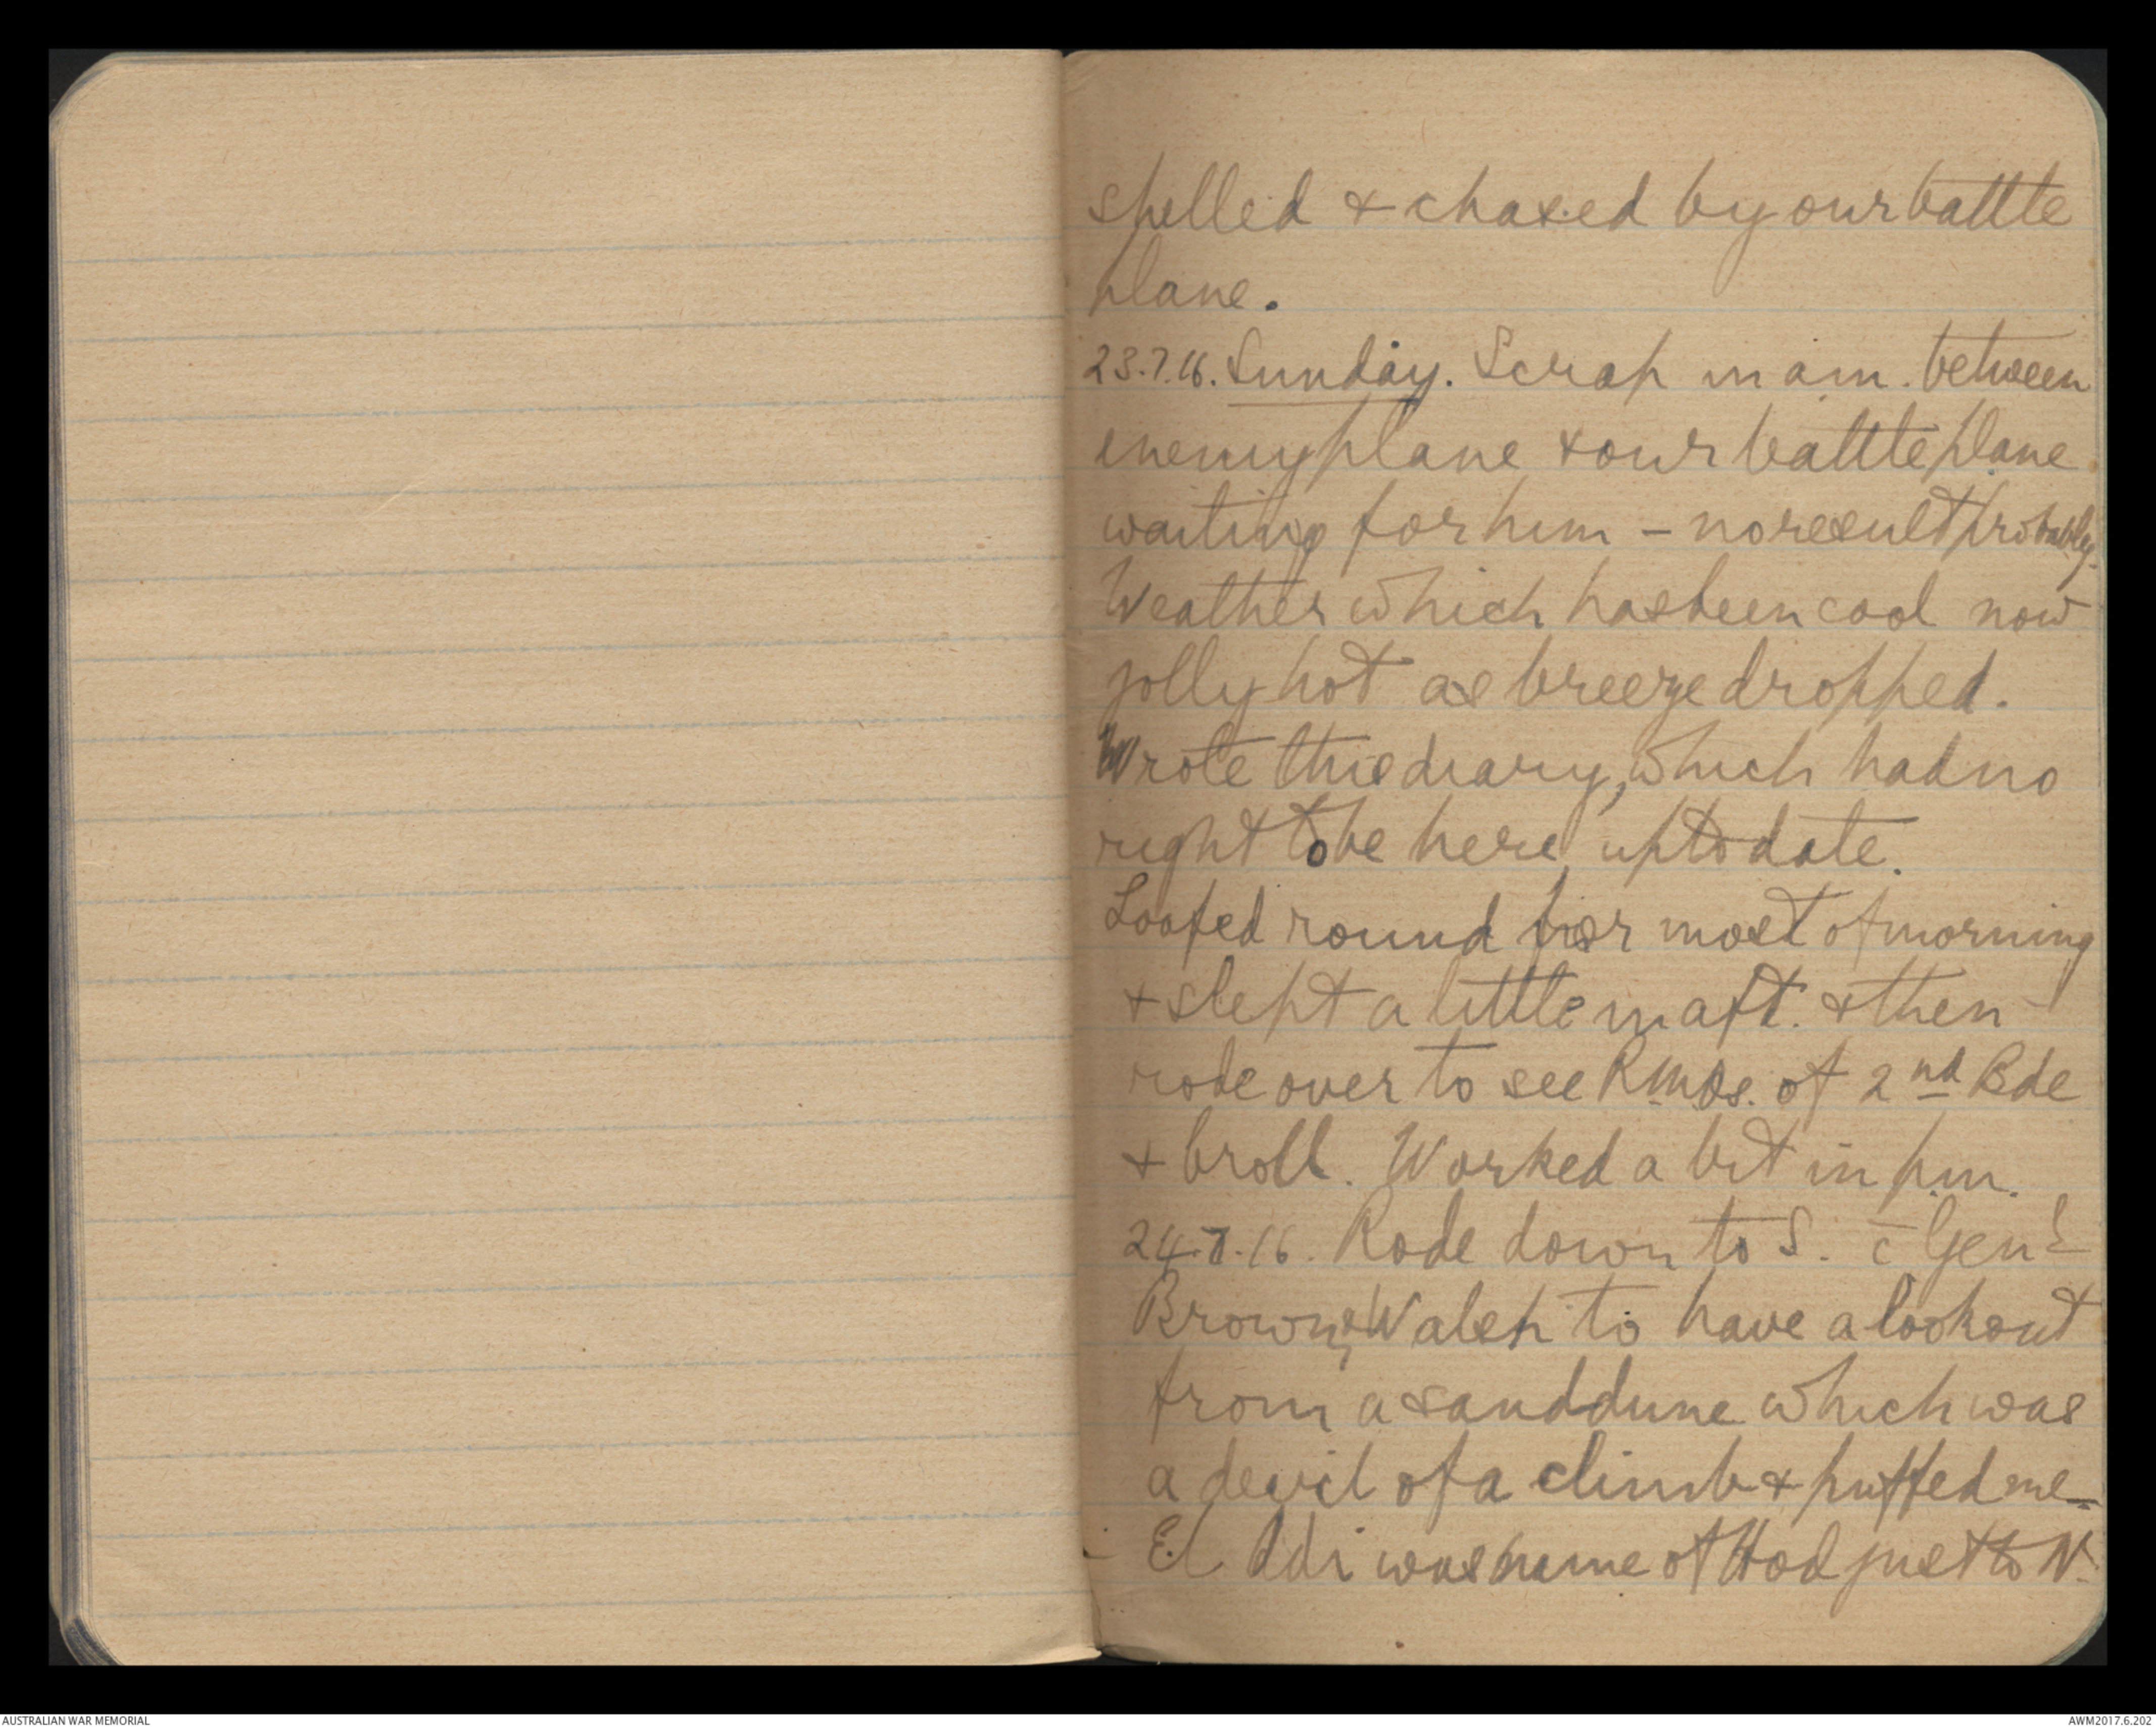 shelled & chased by our battle
plane.
23.7.16. Sunday. Scrap in a.m. between
enemy plane & our battle plane
waiting for him - no result probably.
Weather which has been cool now
jolly hot as breeze dropped.
Wrote this diary, which had no
right to be here up to date.
Loafed round for most of morning
& slept a little in aft. & then
rode over to see Rmds. of 2nd Bde
& broll. Worked a bit in p.m.
24.7.16. Rode down to S. c Genl
Brown, Walsh to have a lookout
from a sand dune which was
a devil of a climb & puffed me -
- El Adi was name of Hod just to N.
AUSTRALIAN WAR MEMORIAL
AWM2017.6.202